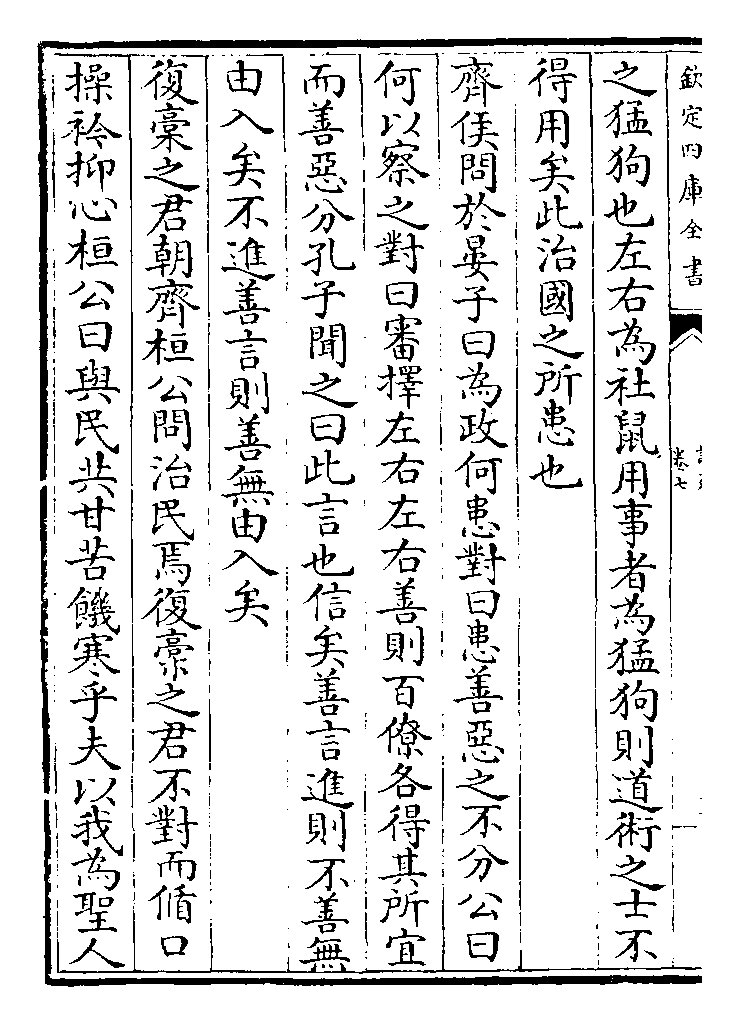 欽定四庫全書
卷七
之猛狗也左右為社鼠用事者為猛狗則道術之士不
得用矣此治國之所患也
齊侯問於晏子曰為政何患對曰患善惡之不分公曰
何以察之對曰審擇左右左右善則百僚各得其所宜
而善惡分孔子聞之曰此言也信矣善言進則不善無
由入矣不進善言則善無由入矣
復槀之君朝齊桓公問治民焉復槀之君不對而循口
操衿抑心桓公曰與民共甘苦饑寒乎夫以我為聖人